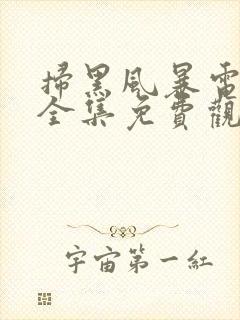 掃黑風暴電
全集免費觀
宇宙第一紅